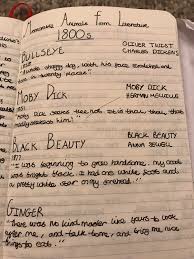 Memorable Animals from Literature
1800s
BULLSEYE OLIVER TWIST
CHARLES DICKENS
"A white shaggy dog, with his face scratched and
torn in twenty places."
MOBY DICK MOBY DICK
HERMAN MELVILLE
"Moby Dick seeks thee not. It is thou, thou, that
madly seekest him!"
BLACK BEAUTY BLACK BEAUTY
1877 ANNA SEWELL
"I was beginning to grow handsome, my coat
was bright black. I had one white foot and
a pretty white star on my forehead."
GINGER
"There was no kind master like yours to look
after me, and talk to me, and bring me nice
things to eat."